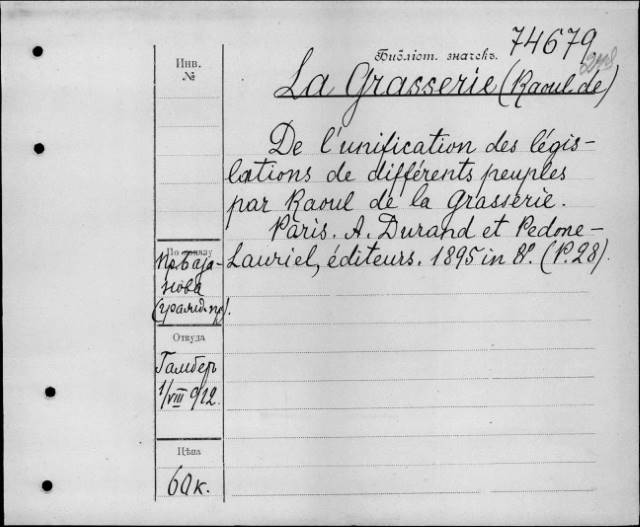 74679
Библіот. значекъ.
Инв.
№
La Grasserie (Raoul de)
De l'unification des légis-
lations de différents peuples
par Raoul de la Grasserie.
Paris. A. Durand et Pedone-
Lauriel, éditeurs. 1895 in 8º. (P. 28).
По
нова
Откуда
Гамбер
1/VIII 912.
Цѣна
60 к.